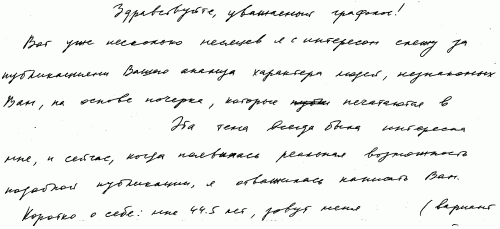 Здравствуйте, уважаемый графолог!
Вот уже несколько месяцев я с интересом слежу за
публикациями Вашего анализа характера людей, незнакомых
Вам, на основе почерка, которые печатаются в
Эта тема всегда была интересна
мне, и сейчас, когда появилась реальная возможность
подобной публикации, я отважилась написать Вам.
Коротко о себе: мне 44.5 лет, зовут меня (вариант